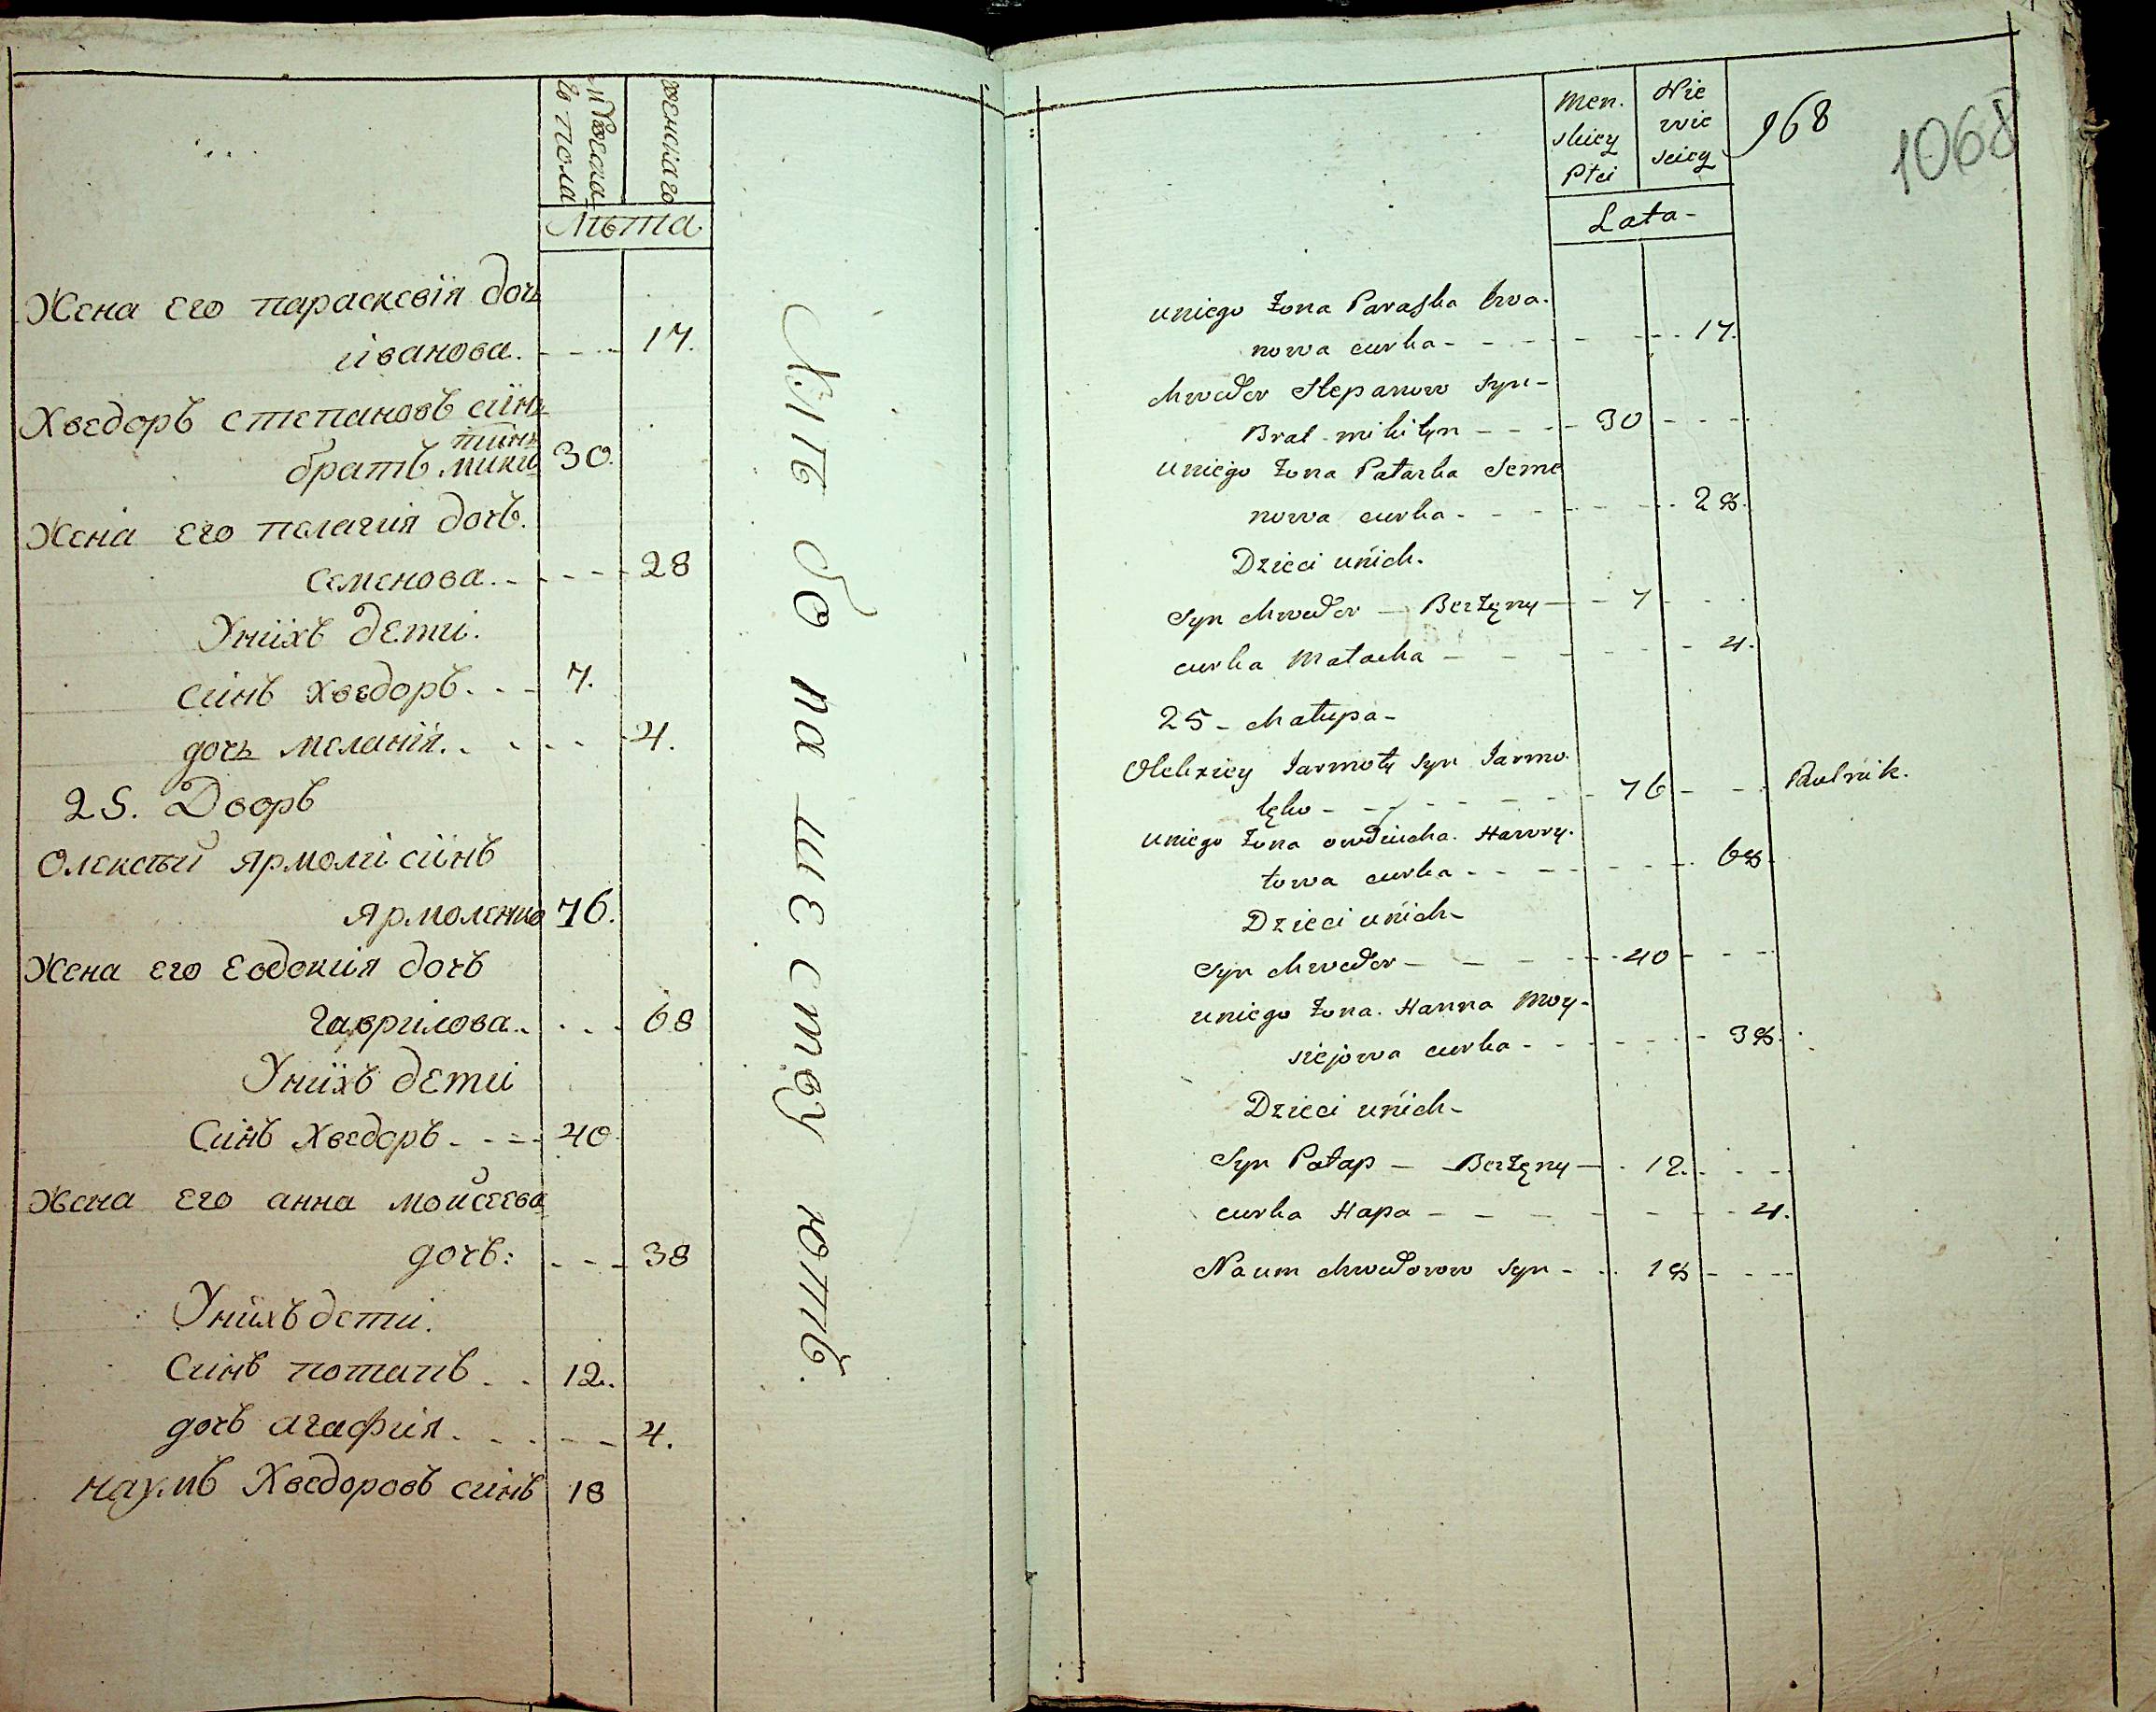 мужеска
го пола
женскаго
Лѣта
Жена его параскевія дочь
іванова. - - - 17.
Хведоръ степановъ синъ
тинъ
братъ мики 30.
Жена его пелагия дочь.
семенова. - - - - 28
Унихъ дети.
синъ хведоръ. - - 7.
дочь меланія. - - - - 4.
25. Дворъ
Олексѣй ярмоли синъ
ярмоленко 76.
Жена его Евдокия дочь
гаврилова. - - - 68
Унихъ дети
Синъ Хведоръ - - - 40.
Жена его анна мойсеева
дочь: - - - 38
Унихъ дети.
Синъ потапъ - - 12.
дочь агафия. - - - - 4.
наумъ Хведоровъ синъ 18
хлѣбопашествуютъ.
Men.
skiey
Płci
Nie
wie
sciey
968
1068
Lata -
uniego Żona Paraska Iwa.
nowa curka - - - - - - 17.
Chwedor Stepanow Syn -
Brat mikityn - - - - 30 - - -
uniego Żona Patarka Seme
nowa curka - - - - - - 28.
Dzieci unich.
Syn Chwedor - Berżęny - - 7 - - -
curka Małacha - - - - - - 4.
25 - Chałupa -
Olekziey Jarmoły Syn Jarmo.
lęko - - - - - - - 76 - - - Rolnik.
uniego Żona owdiucha. Hawry.
łowa curka - - - - - - 68.
Dzieci unich -
Syn Chwedor - - - - - 40 - - -
uniego Żona. Hanna Moy -
siejowa curka - - - - - - 38.
Dzieci unich -
Syn Potap - Berżęny - - 12. - - -
curka Hapa - - - - - - - - 4.
Naum Chwedorow Syn - - 18 - - -